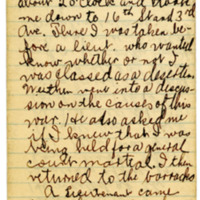 about 2 o'clock and
me down to 16th St and 3rd
Ave. There I was taken be-
fore a lieut. who wanted
know whether or not I
was glassed as a deserter.
We then went into a discus-
sion on the causes of this
war. He also asked me
if I knew that I was
being held for a general
court martial. I then
returned to the barracks
A lieutenant came